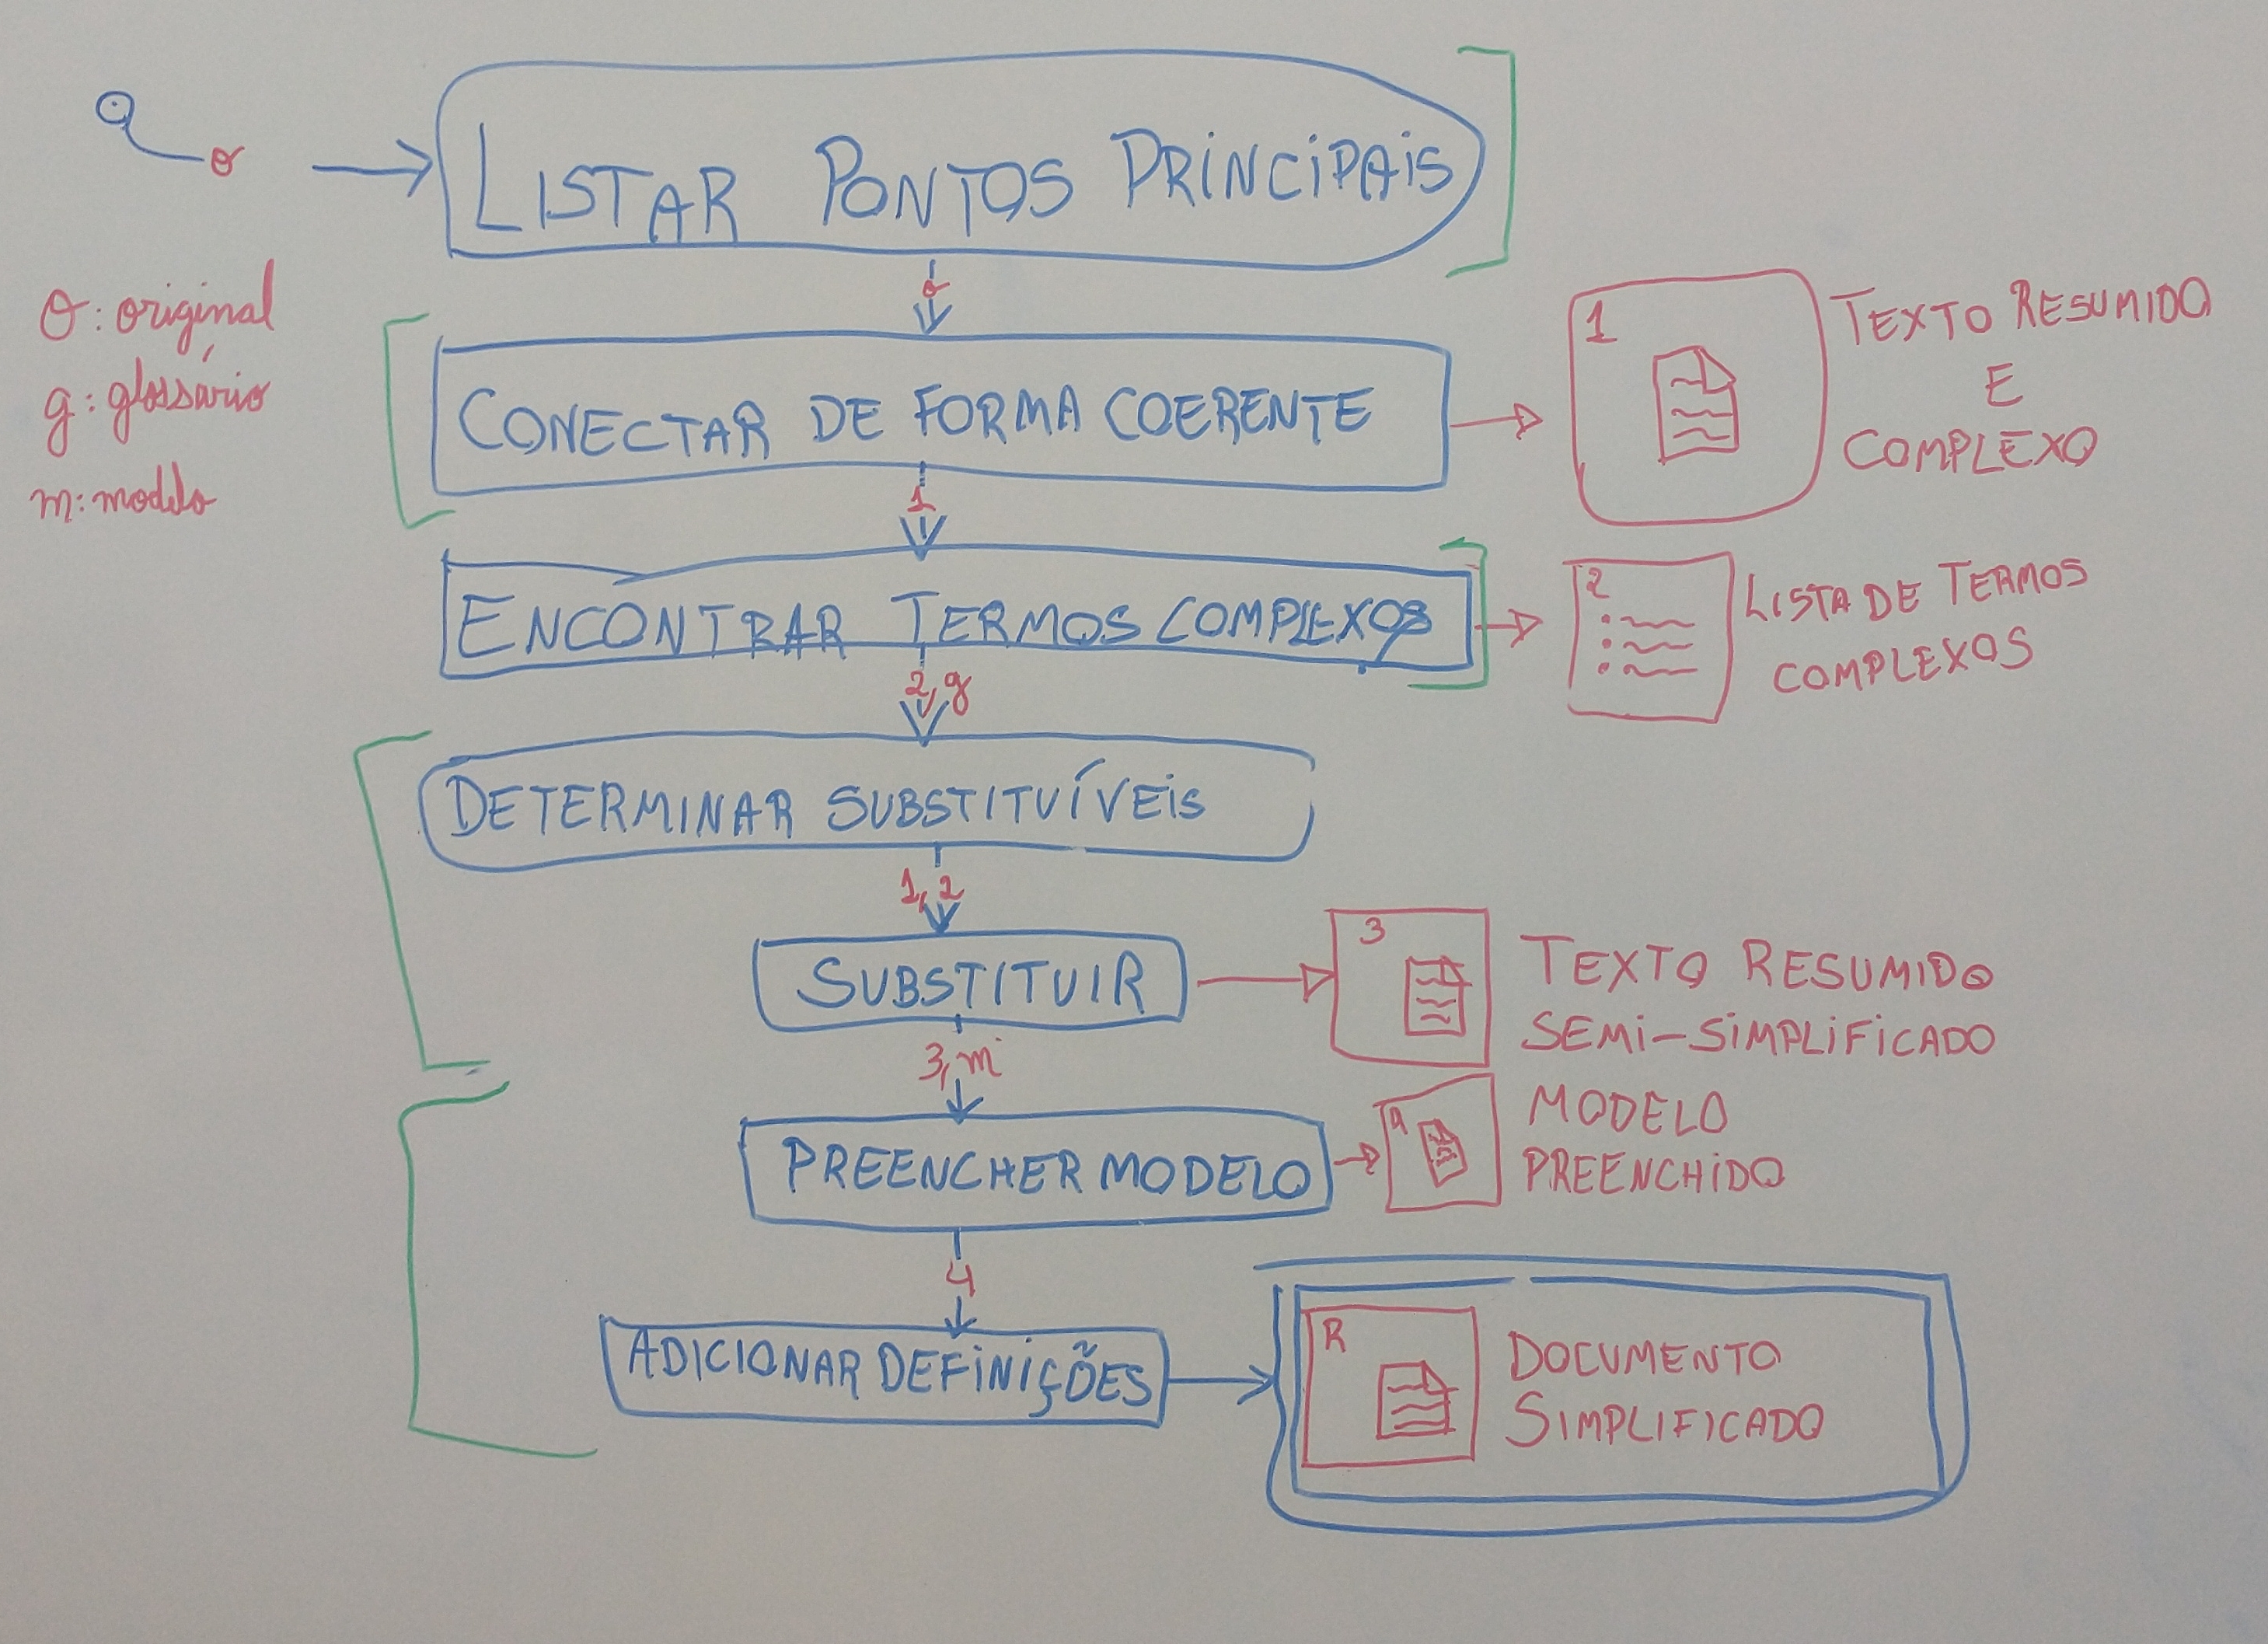 o
LISTAR PONTOS PRINCIPAIS
o: original
g: glossário
m: modelo
o
CONECTAR DE FORMA COERENTE
1
TEXTO RESUMIDO
E
COMPLEXO
1
ENCONTRAR TERMOS COMPLEXOS
2
LISTA DE TERMOS
COMPLEXOS
2, g
DETERMINAR SUBSTITUÍVEIS
1, 2
SUBSTITUIR
3
TEXTO RESUMIDO
SEMI-SIMPLIFICADO
3, m
PREENCHER MODELO
4
MODELO
PREENCHIDO
4
ADICIONAR DEFINIÇÕES
R
DOCUMENTO
SIMPLIFICADO